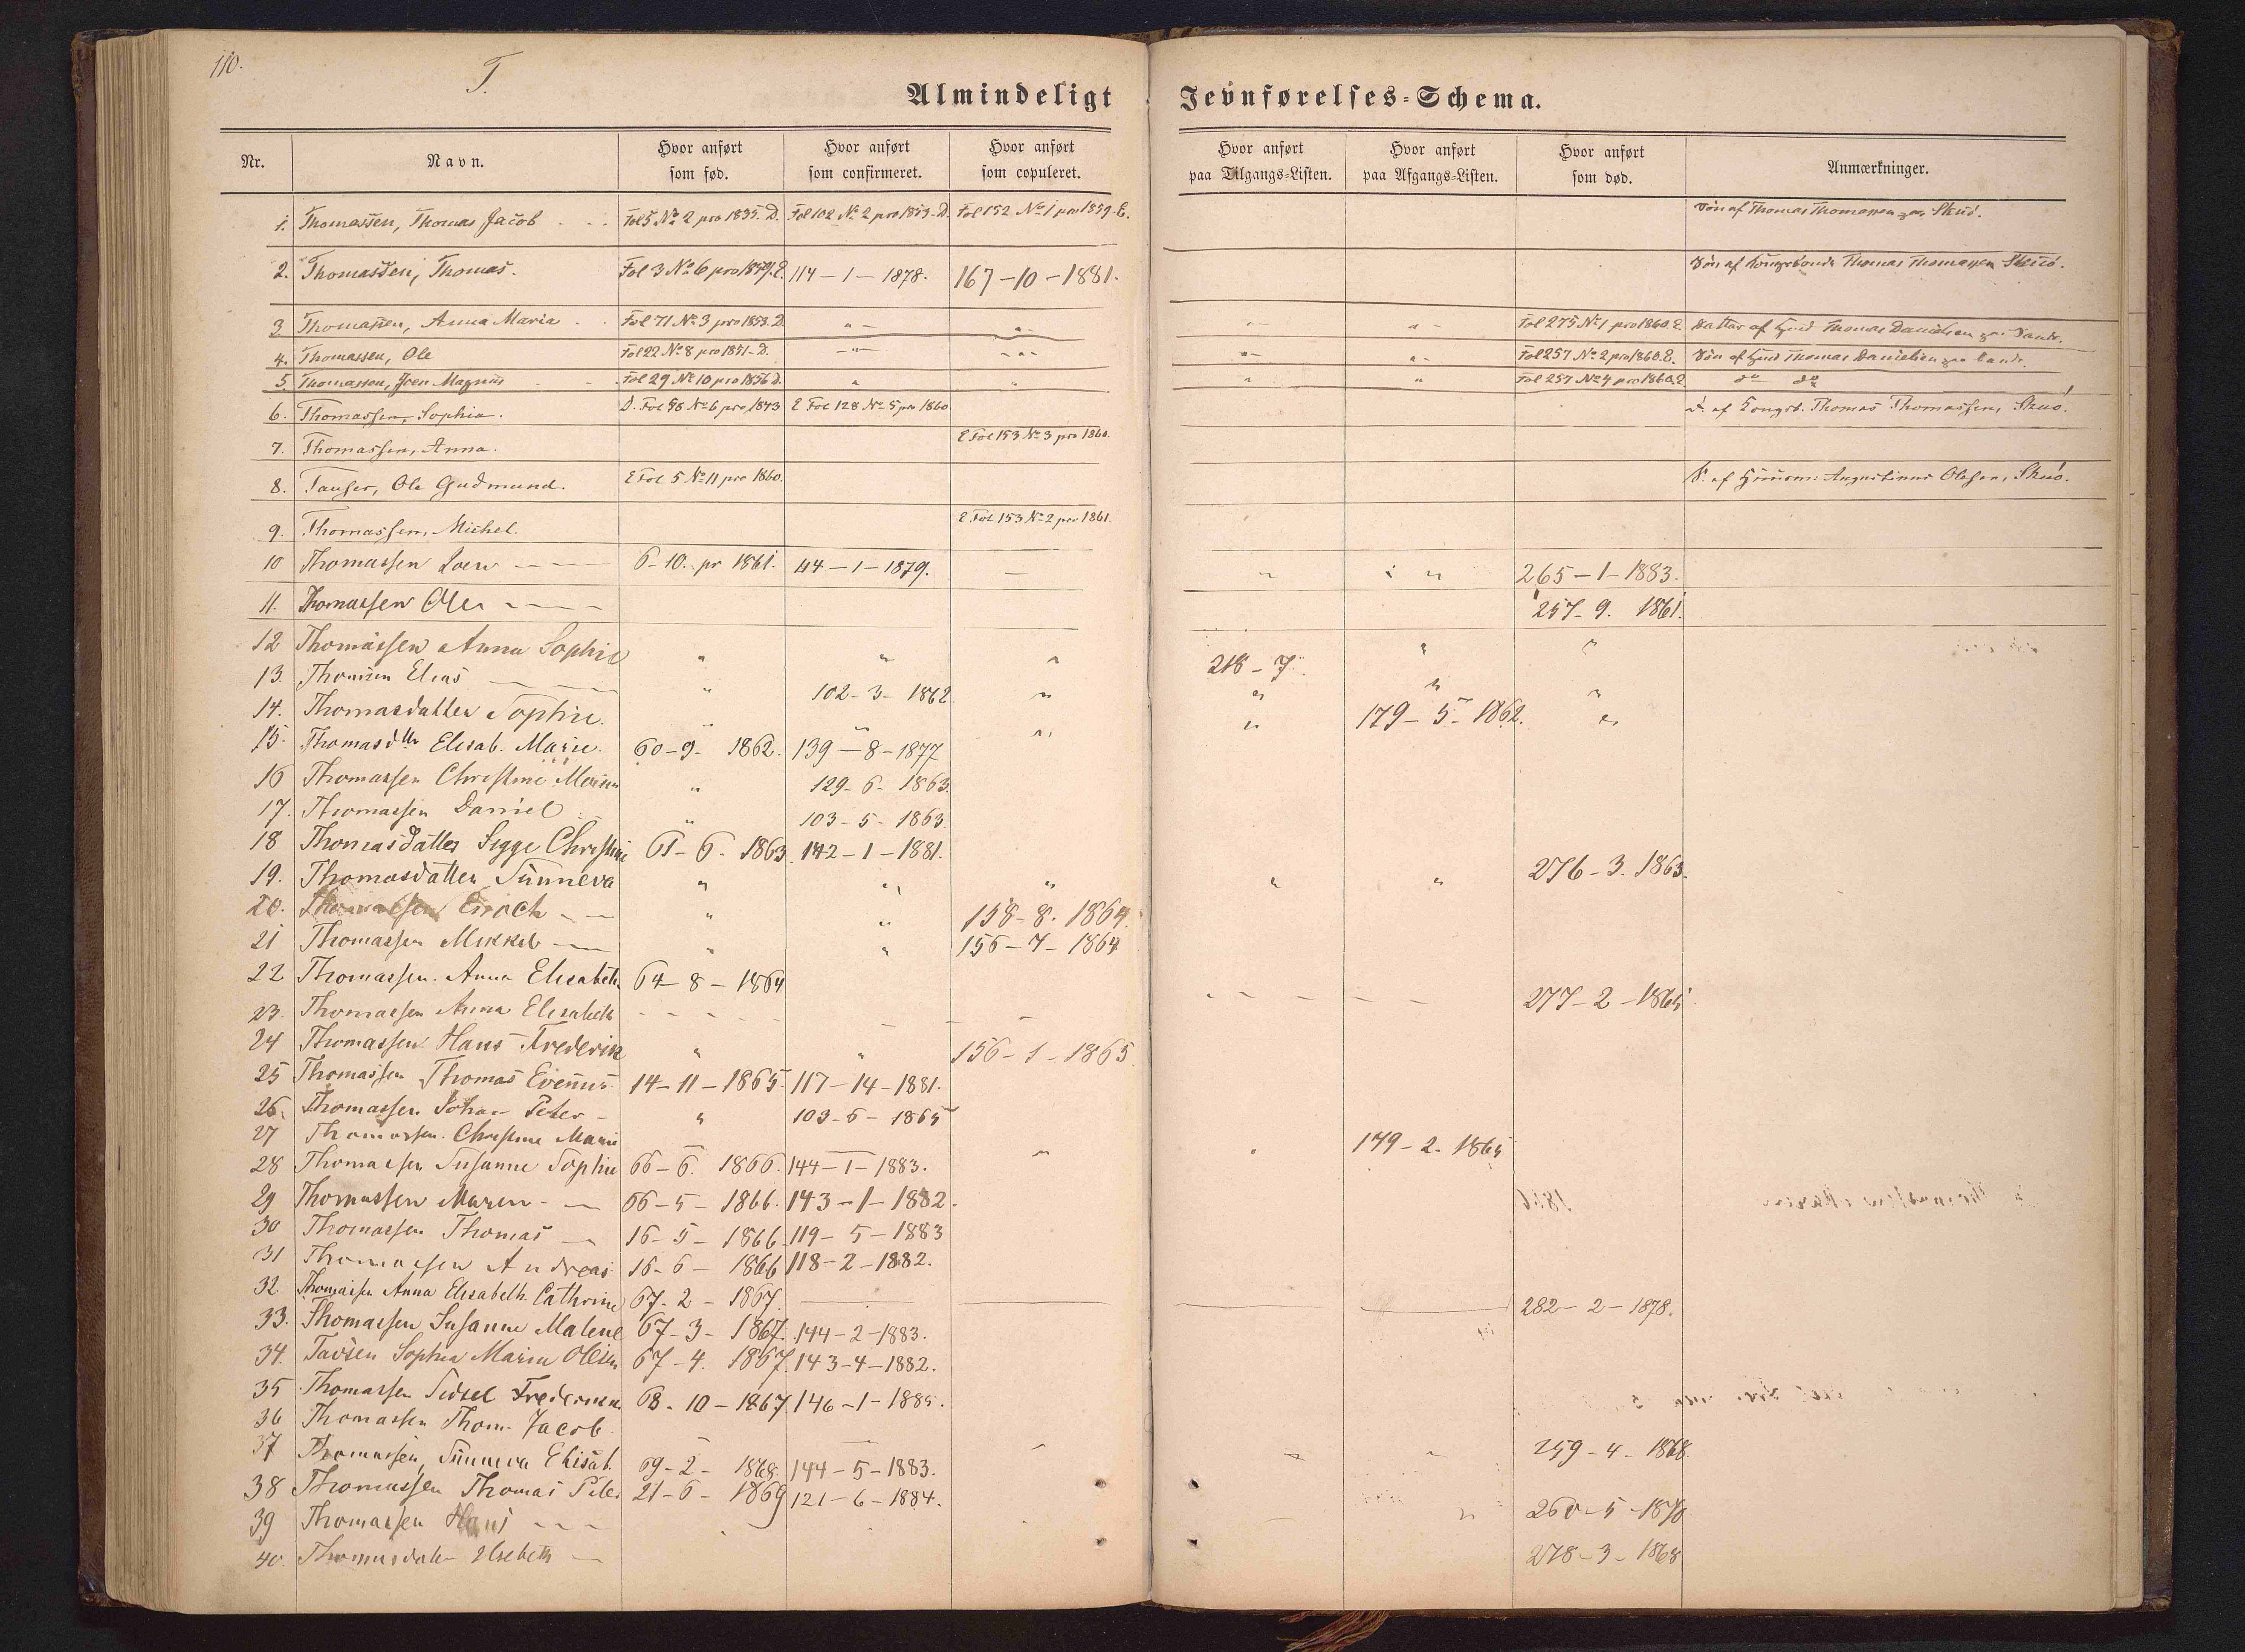 110.
T.
Almindeligt Jevnførelses-Schema.
Nr. Navn. Hvor anført som fød. Hvor anført som confirmeret. Hvor anført som copuleret. Hvor anført paa Tilgangs-Listen. Hvor anført paa Afgangs-Listen. Hvor anført som død. Anmærkninger.
1. Thomassen, Thomas Jacob Fol 5 No 2 pro 1835. D. Fol 102 No 2 pro 1859. D. Fol 152 No 1 pro 1859. E. Søn af Thomas Thomassen paa Skuö.
2. Thomassen, Thomas. Fol 3 No 6 pro 1859. E. 114-1-1878. 167-10-1881. Søn af Kongsbonde Thomas Thomassen Skuö.
3 Thomassen, Anna Maria Fol 71 No 3 pro 1853. D. " " " " Fol 275 No 1 pro 1860. E. Datter af Thomas Danielsen paa Sand.
4. Thomassen, Ole Fol 22 No 8 pro 1851-D. " " " " Fol 257 No 2 pro 1860. E. Søn af Thomas Danielsen paa Sand.
5 Thomassen, Joen Magnus Fol 29 No 10 pro 1856 D. " " " " Fol 257 No 4 pro 1860. E do do
6. Thomassen, Sophia. D. Fol 58 No 6 pro 1843 E Fol 128 No 5 pro 1860 D. af Kongsb. Thomas Thomassen, Skuö.
7. Thomassen, Anna. E Fol 153 No 3 pro 1860.
8. Tausen, Ole Gudmund. E Fol 5 No 11 pro 1860. S. af Augustinus Olesen, Skuö.
9. Thomassen, Michel. E Fol 153 No 2 pro 1861.
10 Thomassen Joen 6-10. pr 1861. 114-1-1879. " " 265-1-1883.
11. Thomassen Ole 257-9. 1861.
12 Thomassen Anna Sophie " " " 218-7. " "
13. Thomsen Elias " 102-3-1862 " " " "
14. Thomasdatter Sophie. " " " " 179-5-1862. "
15. Thomasdtr Elisab. Marie. 60-9-1862. 139-8-1877
16 Thomassen Christine Maria " 129-6-1863.
17. Thomassen Daniel " 103-5-1863
18 Thomasdatter Sigge Christine 61-6. 1863 142-1-1881.
19. Thomasdatter Sunneva " " " " " 276-3. 1863.
20. Thomassen Enoch " " 158-8. 1864.
21 Thomassen Mikkel " " 156-7-1864
22 Thomassen. Anna Elisabeth 64-8-1864
23. Thomassen Anna Elisabeth 277-2-1865
24 Thomassen Hans Frederik " " 156-1-1865
25 Thomassen Thomas Evenus 14-11-1865. 117-14-1881.
26. Thomassen Johan Peter " 103-5-1865
27 Thomassen. Christine Marie 179-2. 1865
28 Thomassen Susanne Sophie 66-6. 1866. 144-1-1883.
29 Thomassen Maren 66-5-1866. 143-1-1882.
30 Thomassen Thomas 16-5-1866 119-5-1883
31 Thomassen Andreas 16-6-1866 118-2-1882.
32. Thomassen Anna Elisabeth. Cathrine 67-2-1867. 282-2-1878.
33. Thomassen Susanne Malene 67-3-1867. 144-2-1883.
34. Tausen Sophia Maria Olesen 67-4. 1867. 143-4-1882.
35 Thomassen Sidsel Frederikka 68-10-1867 146-1-1885.
36 Thomassen Thom. Jacob 259-4-1868
37 Thomassen, Sunneva Elisab. 69-2-1868 144-5-1883.
38 Thomassen Thomas Peter 21-6-1869 121-6-1884.
39 Thomassen Hans " 260-5-1870
40. Thomasdatr Elsebeth 278-3-1868